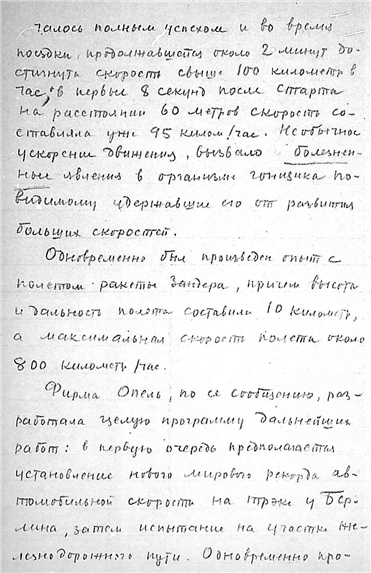 чалось полным успехом и во время
поездки, продолжавшейся около 2 минут до-
стигнута скорость свыше 100 километр в
час, в первые 8 секунд после старта
на расстоянии 60 метров скорость со-
ставляла уже 95 килом/час. Необычное
ускорение движения, вызвало болезнен-
ные явления в организме гонщика по-
видимому удержавшие его от развития
больших скоростей.
Одновременно был произведен опыт с
полетом ракеты Зандера, причем высота
и дальность полета составили 10 километр,
а максимальная скорость полета около
800 километр/час.
Фирма Опель, по ее сообщению, раз-
работала целую программу дальнейших
работ: в первую очередь предполагается
установление нового мирового рекорда ав-
томобильной скорости на трэке у Бер-
лина, затем испытание на участке же-
лезнодорожного пути. Одновременно про-